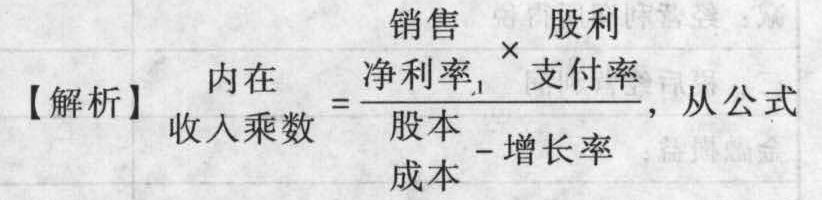 【解析】内在收入乘数 = (销售净利率₁ × 股利支付率) / (股本成本 - 增长率)，从公式